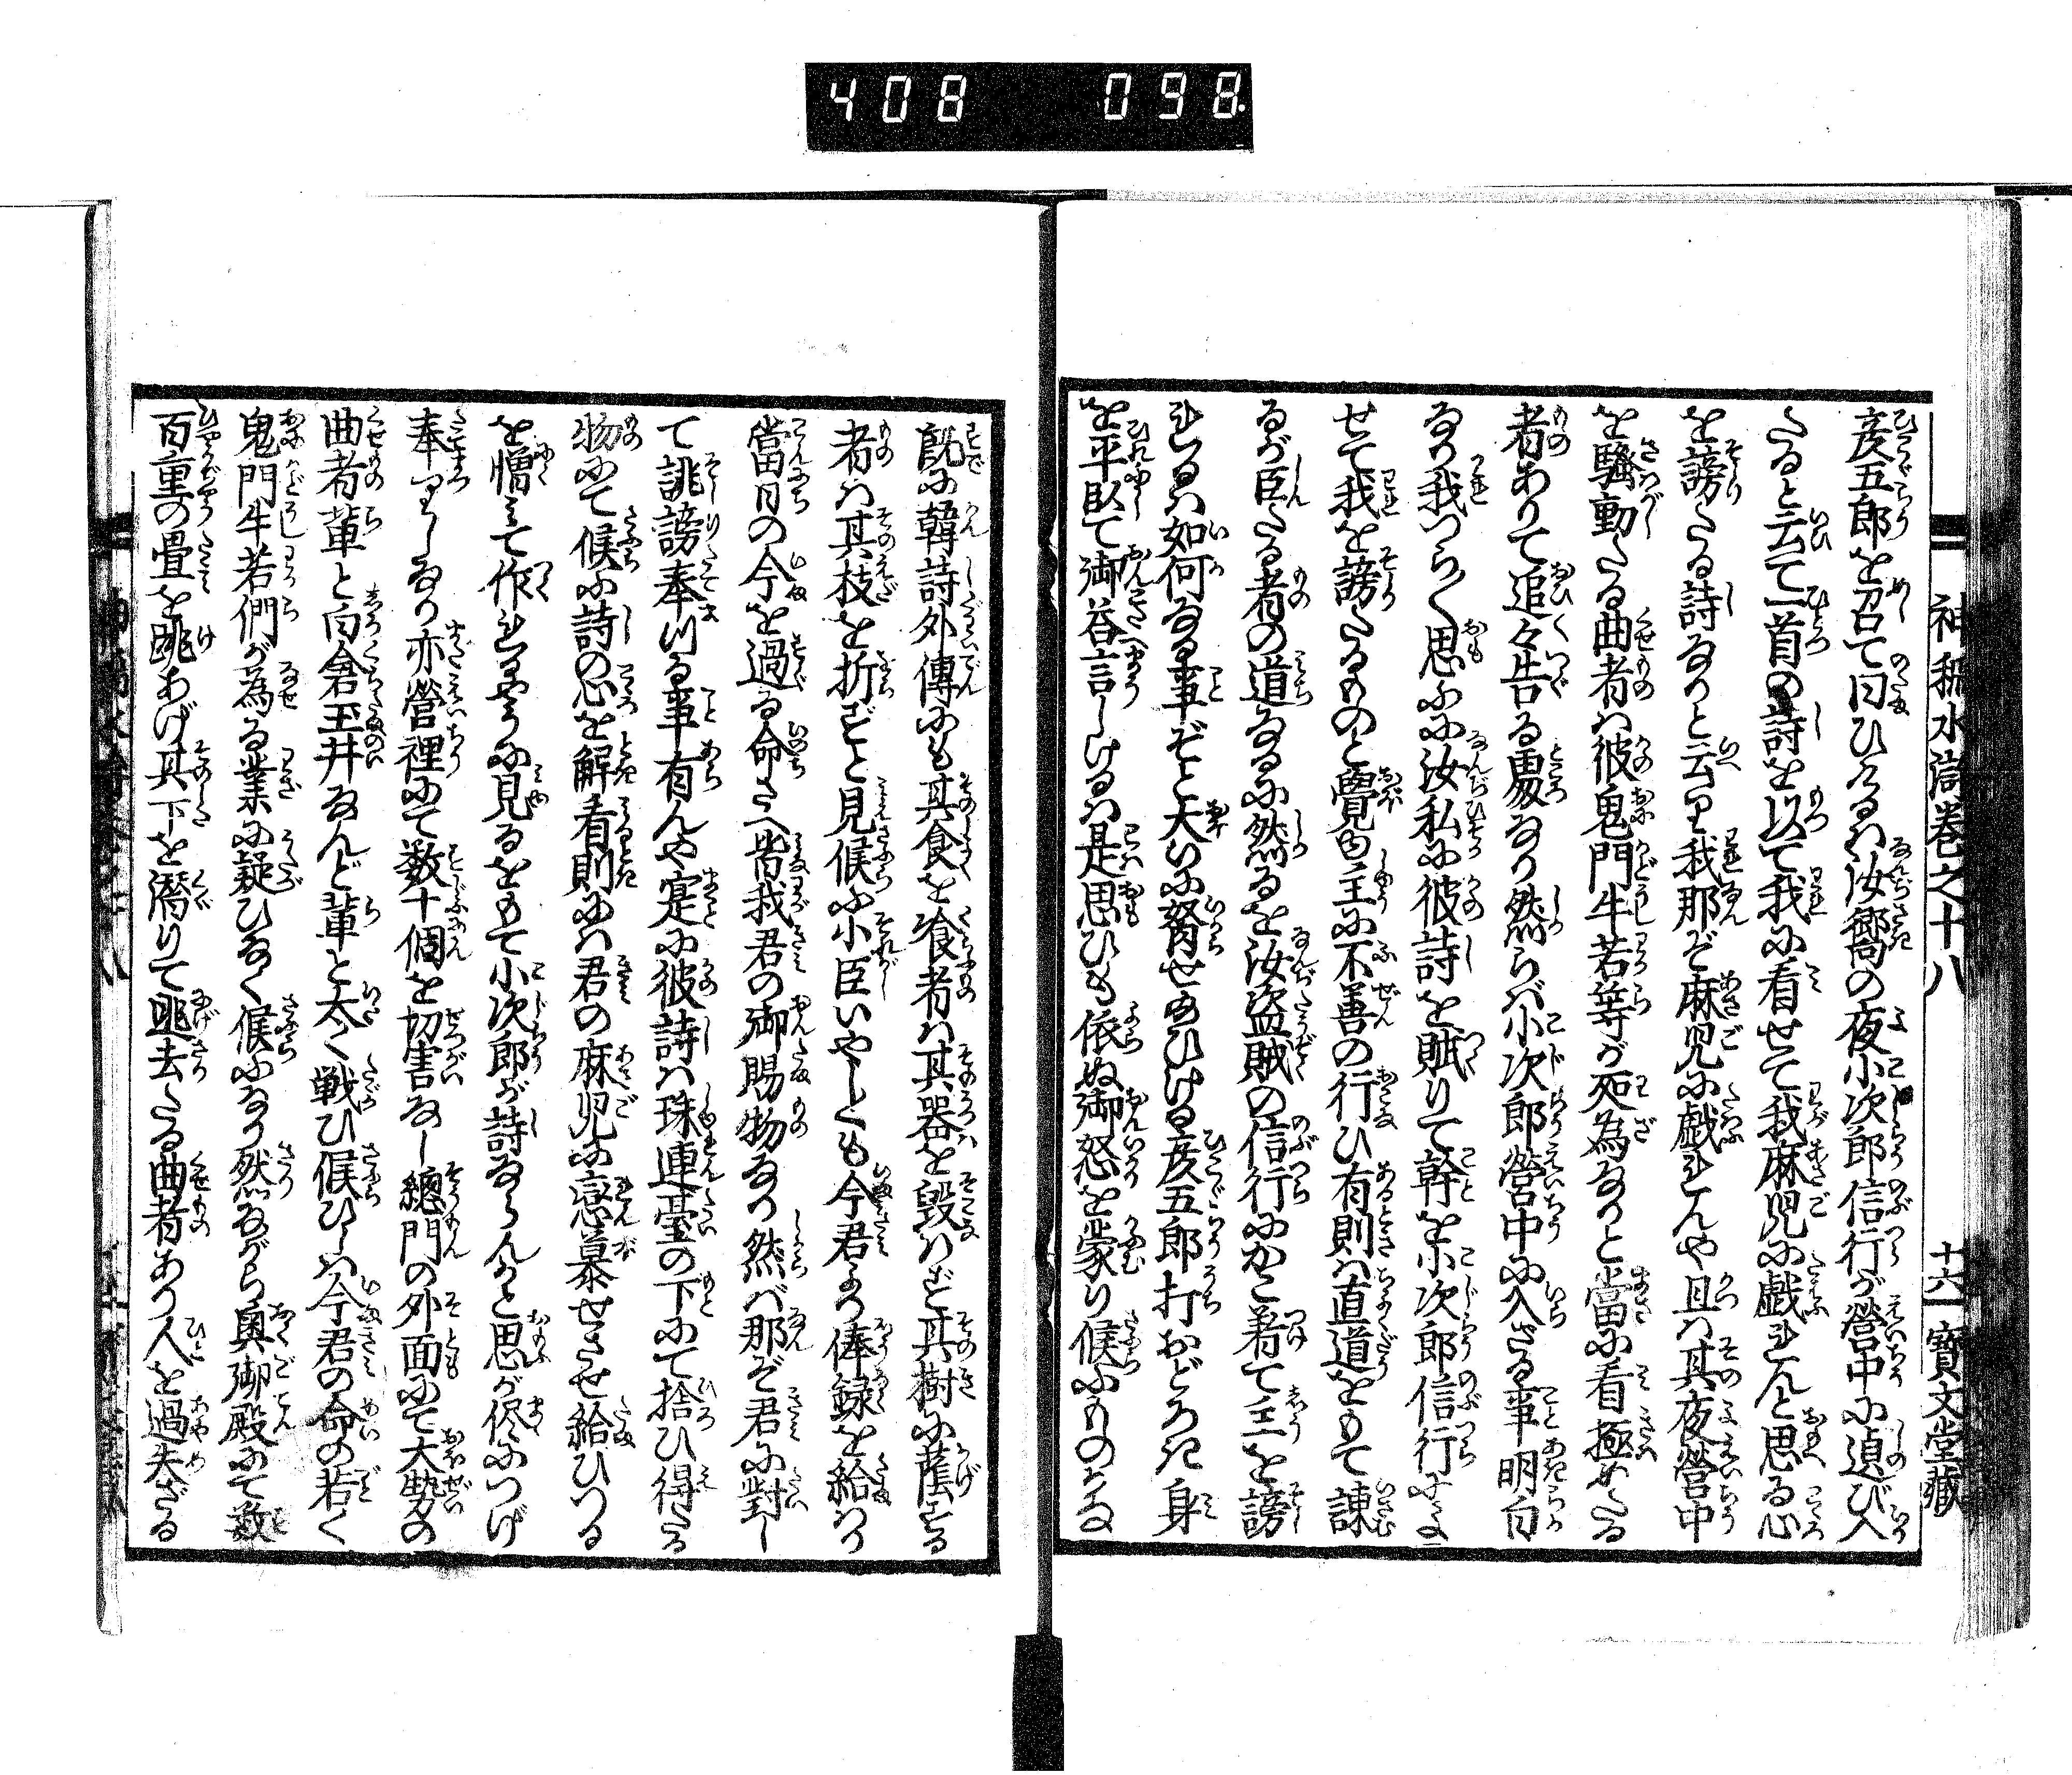 408 098
神稲水滸巻之十八 十六 寳文堂藏
彦五郎を召て曰ひけるハ汝嚮の夜小次郎信行が營中に㒵び入
たると云て一首の詩を以て我に看せて我麻児に戯れんと思る心
を謗たる詩なりと云り我那ぞ麻児に戯れんや且ハ其夜營中
を騒動たる曲者ハ彼鬼門牛若等が所為なりと當に看極めたる
者ありて追々告る處なり然らバ小次郎營中に入ざる事明白
なり我つら〳〵思ふに汝私に彼詩を賦りて幹を小次郎信行によ
せて我を謗たるものと覺ゆ主に不善の行ひ有則ハ直道をもて諫
るが臣たる者の道なるに然るを汝盗賊の信行にかこ着て主を謗
れるハ如何なる事ぞと大いに脅せ給ひける彦五郎打おどろき身
を平臥て御荅言しけるハ是思ひも依ぬ御怒を蒙り候ふものかな
既に韓詩外傳にも其食を飡者ハ其器を毀ハず其樹に蔭する
者ハ其枝を折ずと見候ふ小臣いやしくも今君より俸録を給ハり
當日の今を過る命さへ皆我君の御賜物なり然バ那ぞ君に對し
て誹謗奉つる事有んや寔に彼詩ハ珠連臺の下にて捨ひ得たる
物にて候ふ詩の心を解看則にハ君の麻児に戀慕せさせ給ひつる
を憎みて作れるやうに見るをもて小次郎が詩ならんかと思が侭につげ
奉つりしなり亦營裡にて数十個を切害なし總門の外面にて大勢の
曲者輩と向倉玉井なんど輩と太く戦ひ候ひしハ今君の命の若く
鬼門牛若們が為る業に疑ひなく候ふなり然ながら奥御殿にて数
百重の畳を跳あげ其下を潛りて逃去たる曲者あり人を過失ざる